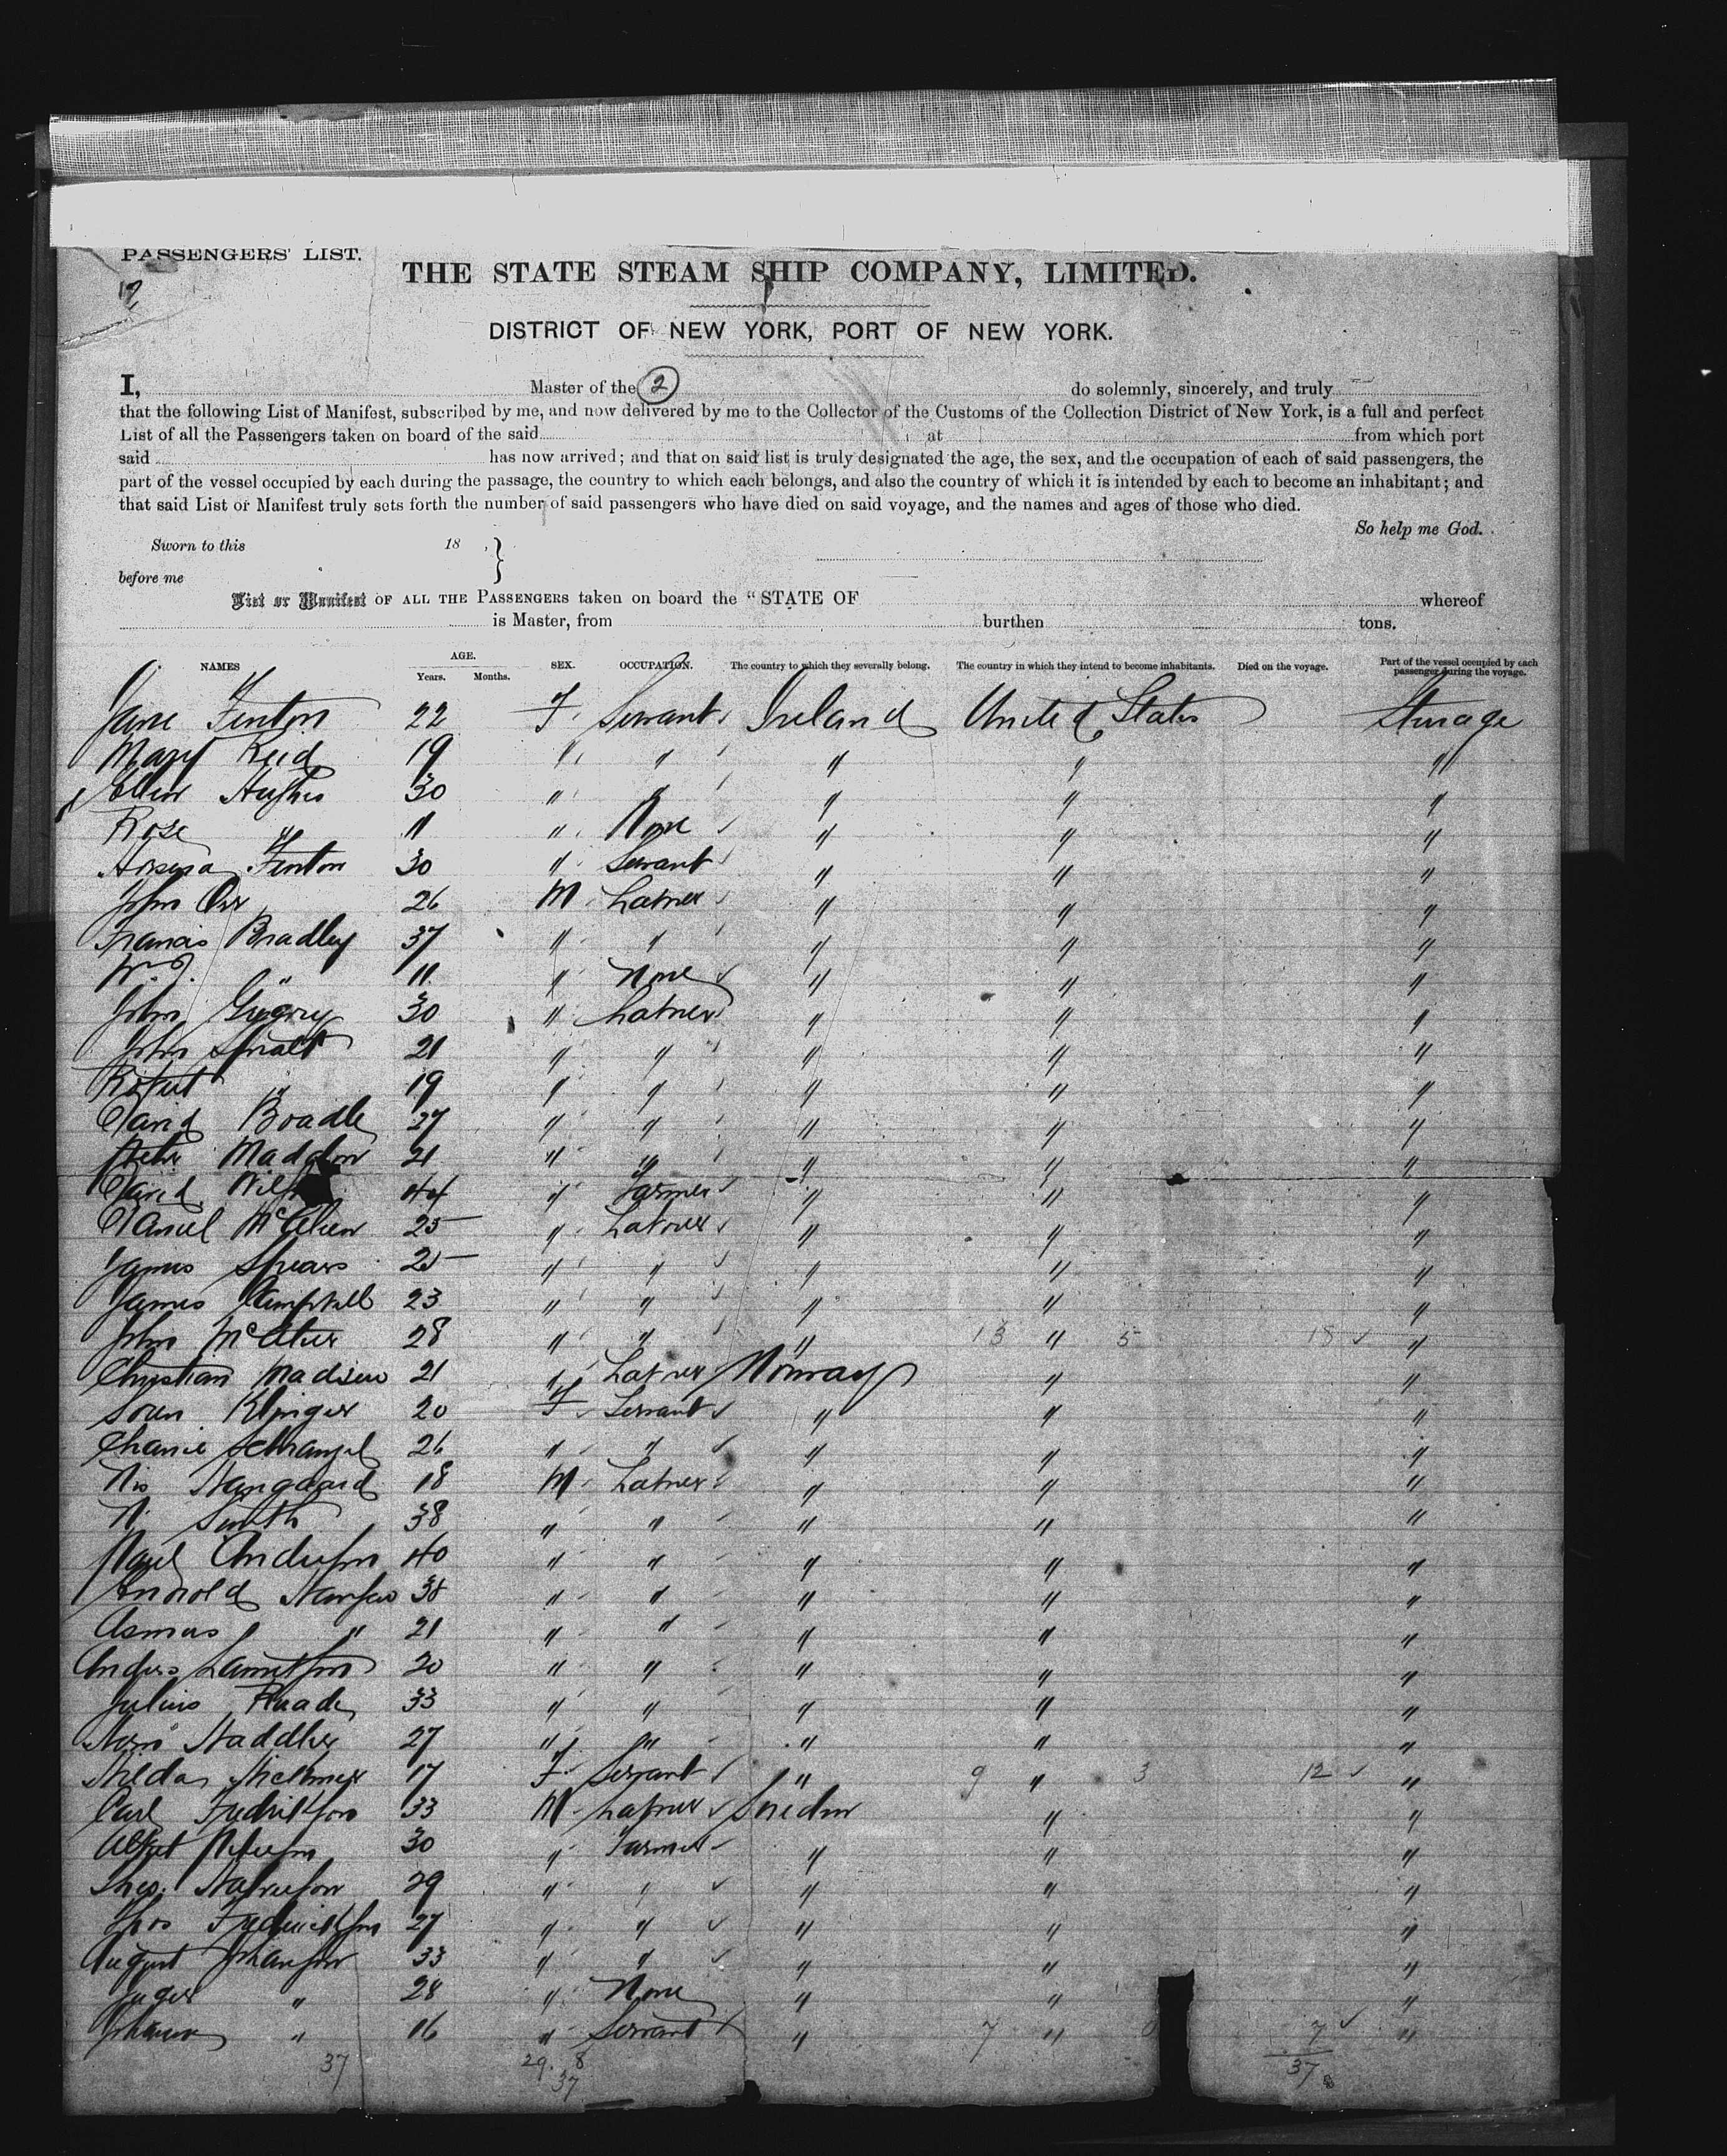 PASSENGERS' LIST.
12
THE STATE STEAM SHIP COMPANY, LIMITED.
DISTRICT OF NEW YORK, PORT OF NEW YORK.
I, Master of the 2 do solemnly, sincerely, and truly
that the following List of Manifest, subscribed by me, and now delivered by me to the Collector of the Customs of the Collection District of New York, is a full and perfect
List of all the Passengers taken on board of the said at from which port
said has now arrived; and that on said list is truly designated the age, the sex, and the occupation of each of said passengers, the
part of the vessel occupied by each during the passage, the country to which each belongs, and also the country of which it is intended by each to become an inhabitant; and
that said List or Manifest truly sets forth the number of said passengers who have died on said voyage, and the names and ages of those who died.
So help me God.
Sworn to this 18 ,
before me
List or Manifest OF ALL THE PASSENGERS taken on board the "STATE OF whereof
is Master, from burthen tons.
NAMES AGE. Years. Months. SEX. OCCUPATION. The country to which they severally belong. The country in which they intend to become inhabitants. Died on the voyage. Part of the vessel occupied by each passenger during the voyage.
Jane Fenton 22 F Servant Ireland United States Sterage
Mary Reid 19 " " " " "
Ellen Hughes 30 " " " " "
Rose " 11 " None " " "
Fenton 30 " Servant " " "
John Orr 26 M Labrer " " "
Francis Bradley 37 " " " " "
Wm J. " 11 " None " " "
John Gregory 30 " Labrer " " "
John Spratt 21 " " " " "
Robert " 19 " " " " "
David Boadle 27 " " " " "
Madden 21 " " " " "
David 44 " Farmer " " "
Daniel 25 " Labrer " " "
James Spears 25 " " " " "
James Campbell 23 " " " " "
John McAteer 28 " " " 13 " 5 18 "
Christian Madsen 21 " Labrer Norway " "
Soren Klinger 20 F Servant " " "
26 " " " " "
Nis 18 M Labrer " " "
N. Smith 38 " " " " "
Paul Anderson 40 " " " " "
Arnold Hansen 38 " " " " "
Asmus " 21 " " " " "
Anders 20 " " " " "
Julius Raade 33 " " " " "
27 " " " " "
17 F Servant " 9 " 3 12 "
Carl Fredrikson 33 M Labrer Sweden " "
30 " Farmer " " "
29 " " " " "
27 " " " " "
August Johanson 33 " " " " "
" 28 " None " " "
" 16 " Servant " 7 " 0 7 "
37 29. 8 37
37